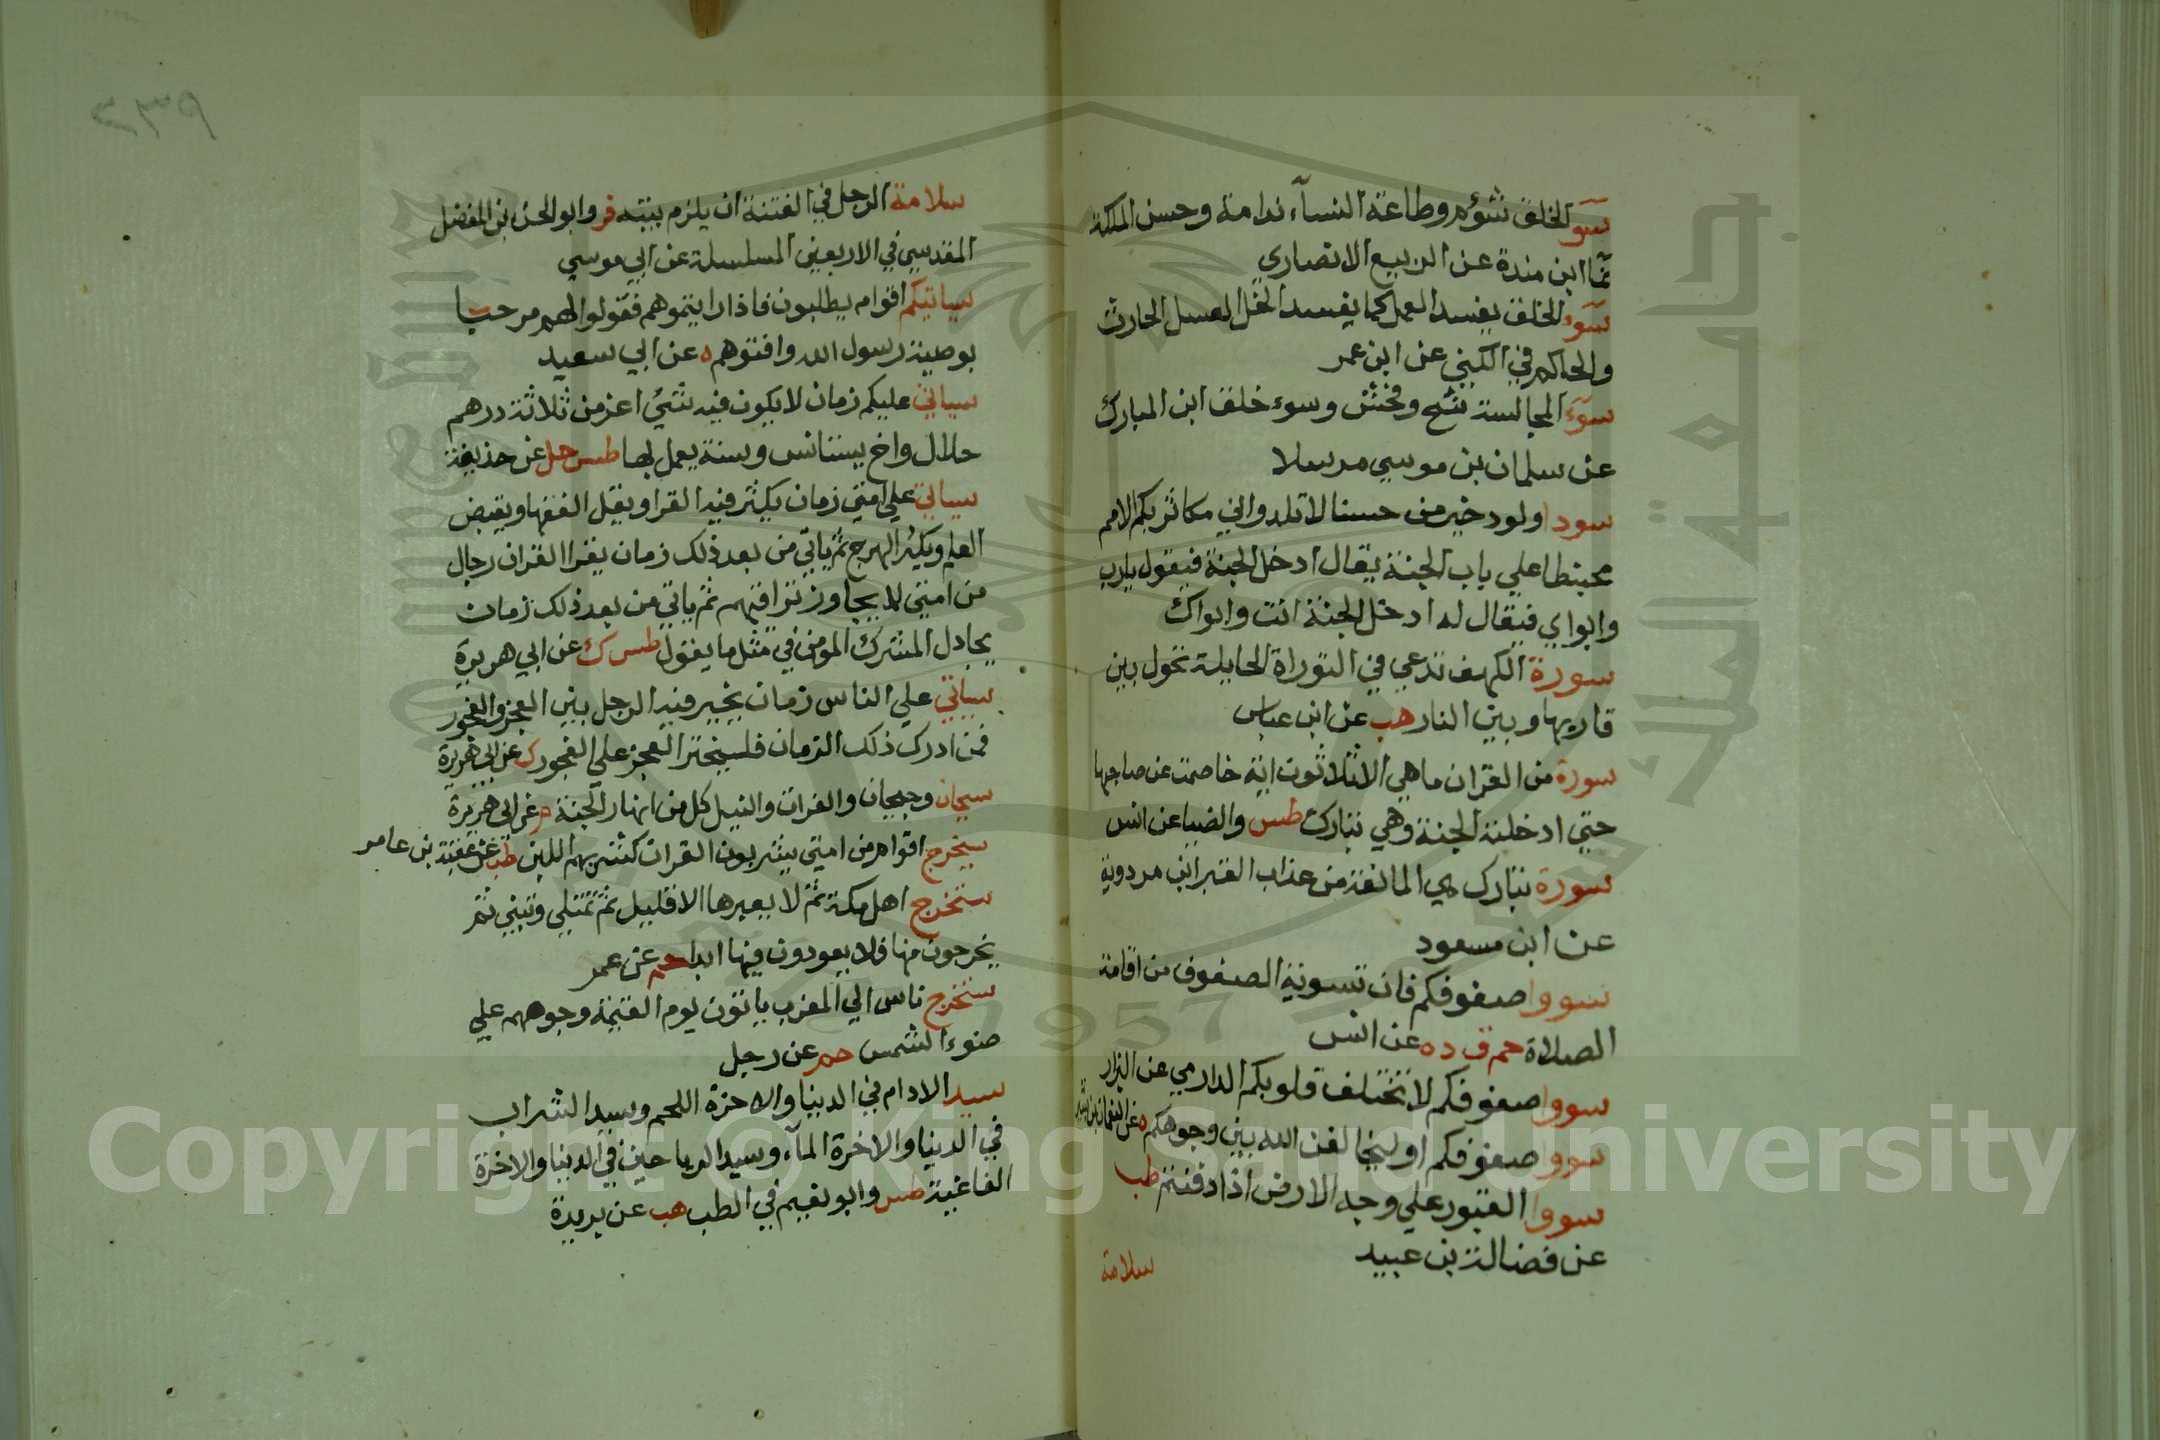 سوء الخلق شؤم وطاعة النساء ندامة وحسن الملكة
نما ابن مندة عن الربيع الانصاري
سوء الخلق يفسد العمل كما يفسد الخل العسل الحارث
والحاكم في الكني عن ابن عمر
سوء المجالسة شح وفحش وسوء خلق ابن المبارك
عن سلمان بن موسي مرسلا
سودا ولود خير من حسنا لا تلد واني مكاثر بكم الامم
محبنطا علي باب الجنة يقال ادخل الجنة فيقول يارب
وابواي فيقال له ادخل الجنة انت وابواك
سورة الكهف تدعي في التوراة الحايلة تحول بين
قاريها وبين النار هب عن ابن عباس
سورة من القران ما هي الا ثلاثون اية خاصمت عن صاحبها
حتي ادخلته الجنة وهي تبارك طس والضيا عن انس
سورة تبارك هي المانعة من عذاب القبر ابن مردوية
عن ابن مسعود
سووا صفوفكم فان تسوية الصفوف من اقامة
الصلاة حم ق د ه عن انس
سووا صفوفكم لا تختلف قلوبكم الدارمي عن البرار
سووا صفوفكم او ليخالفن الله بين وجوهكم ه عن النعمان بن بشير
سووا القبور علي وجه الارض اذا دفنتم طب
عن فضالة بن عبيد
سلامة
سلامة الرجل في الفتنة ان يلزم بيته فر وابو الحسن بن المفضل
المقدسي في الاربعين المسلسلة عن ابي موسي
سياتيكم اقوام يطلبون فاذا رايتموهم فقولوا لهم مرحبا
بوصية رسول الله وافتوهم ه عن ابي سعيد
سياتي عليكم زمان لا يكون فيه شئ اعز من ثلاثة درهم
حلال واخ يستانس وسنة يعمل بها طس حل عن حذيفة
سياتي علي امتي زمان يكثر فيه القرا ويقل الفقها ويقبض
العلم ويكثر الهرج ثم ياتي من بعد ذلك زمان يقرا القران رجال
من امتي لا يجاوز تراقيهم ثم ياتي من بعد ذلك زمان
يجادل المشرك المومن في مثل ما يقول طس ك عن ابي هريرة
سياتي علي الناس زمان يخير فيه الرجل بين العجز والفجور
فمن ادرك ذلك الزمان فليختر العجز علي الفجور ك عن ابي هريرة
سيحان وجيحان والفرات والنيل كل من انهار الجنة م عن ابي هريرة
سيخرج اقوام من امتي يشربون القران كشربهم اللبن طب عن عقبة بن عامر
ستخرج اهل مكة ثم لا يعبرها الا قليل ثم تمتلي وتبني ثم
يخرجون منها فلا يعودون فيها ابدا حم عن عمر
ستخرج ناس الي المغرب ياتون يوم القيمة وجوههم علي
ضوء الشمس حم عن رجل
سيد الادام في الدنيا والاخرة اللحم وسيد الشراب
في الدنيا والاخرة الماء وسيد الرياحين في الدنيا والاخرة
الفاغية طس وابو نعيم في الطب هب عن بريدة
جامعة الملك سعود
King Saud University
1957
Copyright © King Saud University